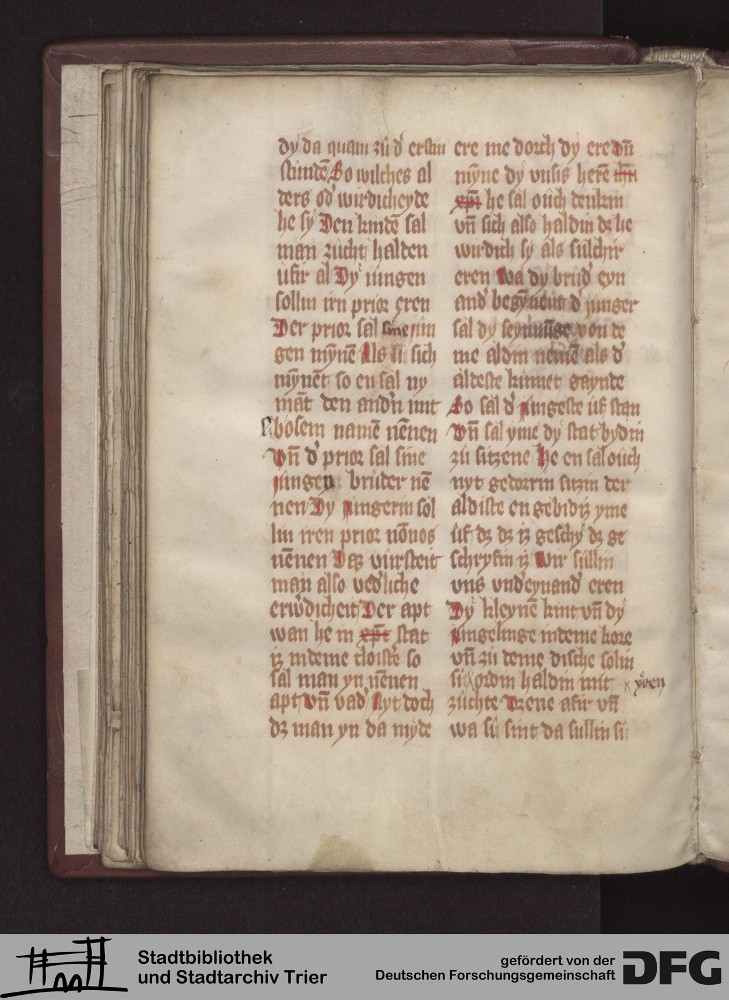 dy da quam zů d' erstin
stundē So wilches al
ders od' wirdicheyde
he sy Den kindē sal
man zucht halden
ůfir al Dy iungen
sollin irn prior eren
Der prior sal sine iun
gen mȳnē Als si sich
nȳnēt so en sal ny
māt den and'n mit
bosem namē nēnen
Vn̄ d' prior sal sine
iungen brůder nē
nen Dy iungerin sol
lin iren prior nōnos
nēnen Daz virsteit
man also ved'liche
erw'dicheit Der apt
wan he in xp̄i stat
iz indeme cloist'e so
sal man yn nēnen
apt vn̄ vad' Nyt doch
dz man yn da myde
ere me dorch dy ere vn̄
mȳne dy vnsis herē ihū
xp̄i he sal ouch denkin
vn̄ sich also haldin dz he
wirdich sy als sulchir
eren Wa dy brud' eyn
and' begȳneint d' iunger
sal dy seynūge von de
me aldin nemē als d'
aldeste kumet gaynde
So sal d' iungeste uf stan
Vn̄ sal yme dy stat bydin
zu sitzene He en sal ouch
nyt gedorrin sitzin der
aldiste en gebidiz yme
ůf dz dz iz geschy dz ge
schryfin iz Wir sullin
vns vnd'eynand' eren
Dy kleynē kint vn̄ dy
iungelinge indeme kore
vn̄ zů deme dische soln
si x ordin haldin mit x yren
zuchte Vzene afir vn̄
wa si sint da sullin si
Stadtbibliothek
und Stadtarchiv Trier
gefördert von der
Deutschen Forschungsgemeinschaft
DFG